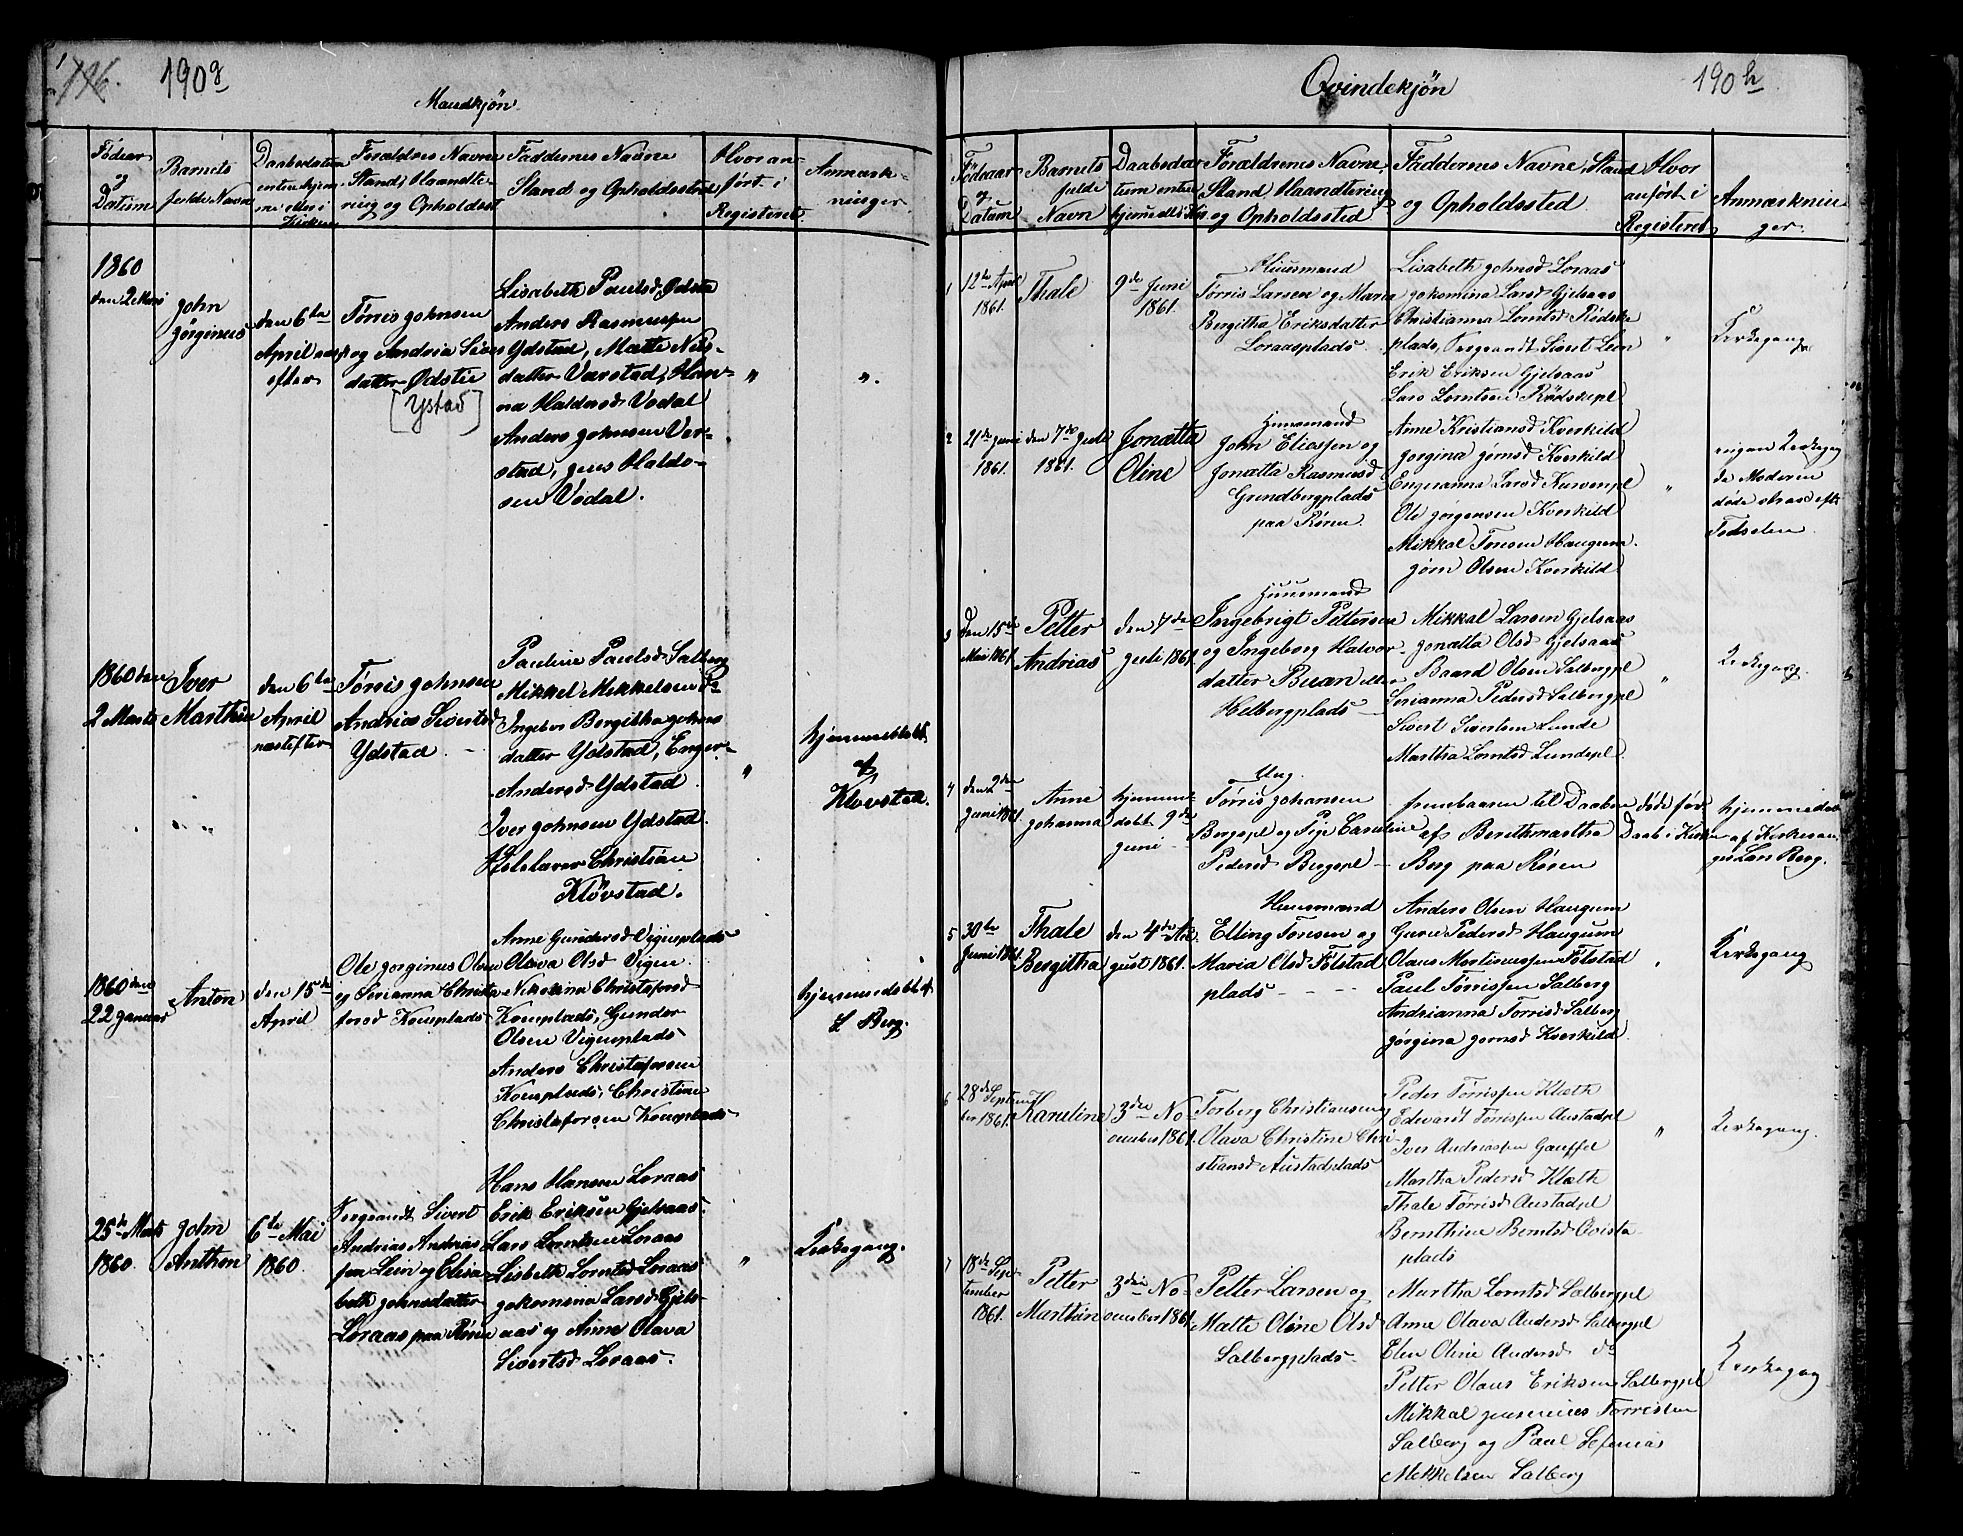 190g
Mandkjön
Födear
og
Datum
Barnets
fulde Navn
Daabsdatum
enten hjem
me eller i
Kirken
Forældres Navne
Stand, Haandte-
ring og Opholdsst
Faddernes Navne
Stand og Opholdssted
Hvor an-
ført i
Registeret
Anmærk-
ninger
1860
den 2 Mars
John
Jörginus
den 6te
April næst
efter
Törris Johnsen
og Andria Sivers
datter Ødstie
[Ystad]
Lisabeth Paulsd Ødstie
Anders Rasmussen
Ydstad, Mætte Nils-
datter Værstad, Han-
na Haldorsd Vodal
Anders Johnsen Ver-
stad, Jens Haldo-
sen Vodal.
"
".
1860 den
2 Marts
Iver
Marthin
den 6te
April
næstefter
Törris Johnsen
Andrias Sivertsd
Ydstad
Pauline Paulsd Salberg
Mikkel Mekkelsen
Ingebor Bergitha Johns
datter Ydstad, Enger-
Andersd Ydstad
Iver Johnsen Ydstad
Christian
Klövstad.
"
hjemmedöbt
af
Klovstad.
1860 den
22 Januar
Anton
den 15de
April
Ole Jorginus Olsen
og Serianna Christa
forsd Komplads
Anne Gundersd Vigenplads
Olava Olsd Vigen
Nikolina Christofersd
Komplads, Gunder
Olsen Vigenplads
Anders Christofersen
Komplads, Christian
Christoforsen Komplads
"
hjemmedöbt af
L Berg.
25de Marts
1860.
John
Anthon
6te Mai
1860.
Sergeandt Sivert
Andrias Andrias
sen Lein og Elisa
beth Johnsdatter
Loraas paa Røren
Hans Hansen Loraas
Erik Eriksen Gjelsaas
Lars Lorntsen Loraas
Lisbeth Lorntsd Loraas
Jokomina Larsd Gjels-
aas og Anne Olava
Sivertsd Loraas.
"
Kirkegang.
Qvindekjön
190h
Födeaar
og
Datum
Barnets
fulde
Navn
Daabsda-
tum enten
hjemme
Forældrenes Navne,
Stand Haandtering
og Opholdssted
Faddernes Navne, Stand
og Opholdssted.
Hvor
anført i
Registeret
Anmærknin
ger.
1
12te April
1861.
Thale
9de Juni
1861.
Huusmand
Törris Larsen og Maria
Bergitha Eriksdatter
Loraasplads
Lisabeth Johnsd Loraas
Jokomina Larsd Gjelsaas
Christianna Lorntsd Rödske
plads, Sergeandt Sivert Lein
Erik Eriksen Gjelsaas
Lars Lorntsen Rödskepl
"
Kirkegang
2
21de Juni
1861.
den 7de Juli
1861.
Jonætta
Oline
Huusmand
John Eliassen og
Jonætta Rasmusd
Grundbergplads
paa Røren.
Anne Kristiansd Kverkild
Jorgina Jörnsd Kverkild
Engeranna Larsd
Ole Jörgensen Kverkild
Mikkal Torresen Haugum
Jörn Olsen Kverkild
"
ingen Kirkegang
da Moderen
døde strax efter
Fødselen
3
Den 15de
Mai 1861
Petter
Andrias
den 7de
Juli 1861
Huusmand
Ingebrigt Pettersen
og Ingeborg Halvor
datter Buan eller
Helbergplads
Mikkal Larsen Gjelsaas
Jonætta Olsd Gjelsaas
Baard Olsen Salbergpl
Serianna Pedersd Salbergpl
Sivert Sivertsen Lunde
Martha Lorntsd Lundepl
"
Kirkegang.
4
den 2den
Juni 1861
Anne
Johanna
hjemme
döbt 9de
Juni
Ung.
Törris Johansen
Bergspl og Pige Caroline
Pedersd Bergspl
frembaaren til Daaben
af Berethmartha
Berg paa Røren
døde før
Daab i Kirken
hjemmedøbt
af Kirkesan
ger Lars Berg.
5
30te
Juni 1861
Thale
Bergitha
den 4de Au
gust 1861.
Huusmand
Elling Torresen og
Maria Olsd Folstad
plads
Anders Olsen Haugum
Guru Pedersd Haugum
Olaus Martinussen Folstad
Paul Törrissen Salberg
Andrianna Torrisd Salberg
Jörgina Jörnsd Kverkild
"
Kirkegang
6
28de Septem
ber 1861.
Karoline
3die No-
vember 1861.
Torberg Christiansen
Olava Christine Chri
stiansd Austadplads
Peder Törrissen Klæth
Edevardt Törrissen Austadpl
Iver Andriassen Gauffel
Martha Pedersd Klæth
Thale Törrisd Austadpl
Bernthine Berntsd
plads
"
Kirkegang.
7
18de Sep
tember
1861.
Petter
Marthin
3die No-
vember 1861
Petter Larsen og
Matte Oline Olsd
Salbergplads
Martha Lorntsd Salbergpl
Anne Olava Andersd Salbergpl
Elen Oline Andersd do
Petter Olaus Eriksen Salbergpl
Mikkal Jensenius Torrissen
Salberg og Paul Sefanias
Mekkelsen Salberg
Kirkegang